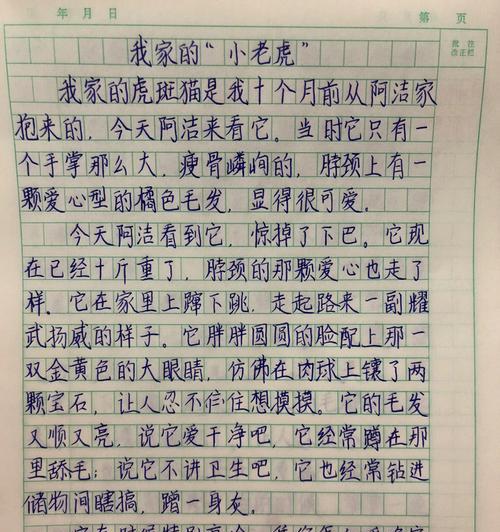 年 月 日 第 页
批 注
改正栏
我家的“小老虎”
我家的虎斑猫是我十个月前从阿洁家
抱来的，今天阿洁来看它。当时它只有一
个手掌那么大，瘦骨嶙峋的，脖颈上有一
颗爱心型的橘色毛发，显得很可爱。
今天阿洁看到它，惊掉了下巴。它现
在已经十斤重了，脖颈的那颗爱心也走了
样。它在家里上蹿下跳，走起路来一副耀
武扬威的样子。它胖胖圆圆的脸配上那一
双金黄色的大眼睛，仿佛在肉球上镶了两
颗宝石，让人忍不住想摸摸。它的毛发
又顺又亮，说它爱干净吧，它经常蹲在那
里舔毛；说它不讲卫生吧，它也经常钻进
储物间瞎搞，蹭一身灰。